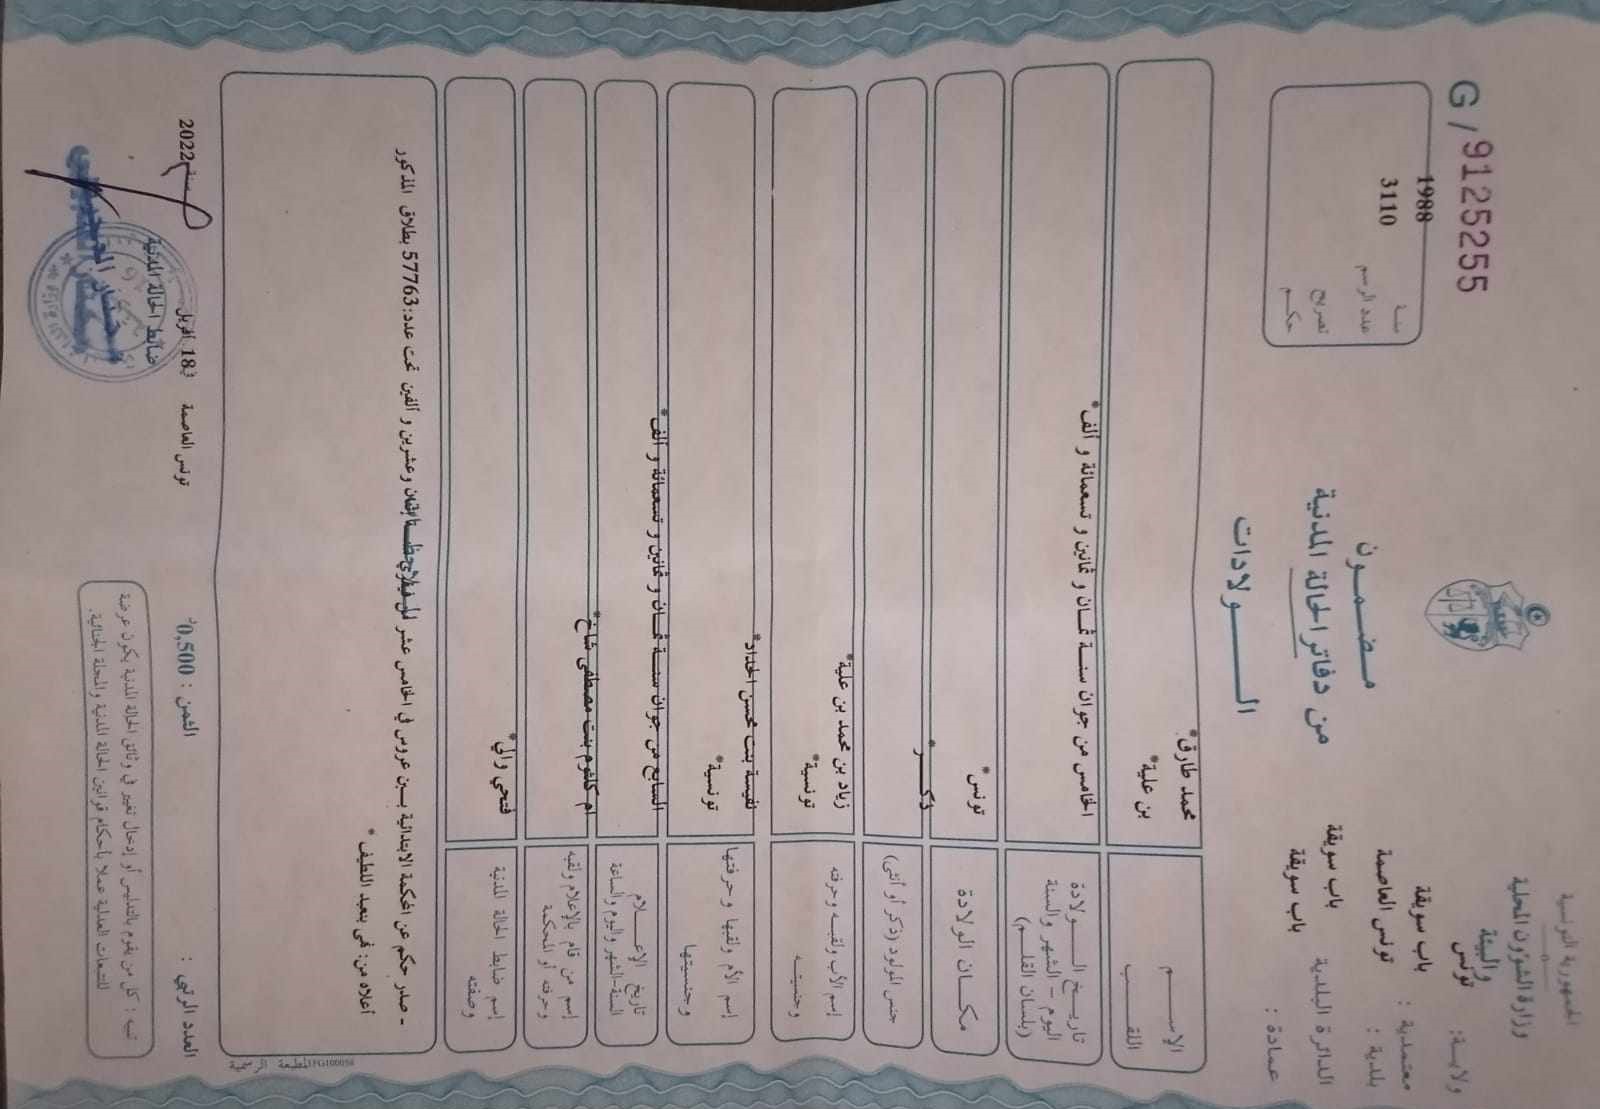 الجمهورية التونسية
وزارة الشؤون المحلية
والبيئة
ولاية: تونس
معتمدية : باب سويقة
بلدية : تونس العاصمة
الدائرة البلدية باب سويقة
عمادة : باب سويقة
مضمون
من دفاتر الحالة المدنية
الولادات
G/9125255
سنة 1988
عدد الرسم 3110
تصريح
حكم
الإسم محمد طارق*
اللقب بن علية*
تاريخ الولادة
اليوم - الشهر والسنة
(بلسان القلم)
الخامس من جوان سنة ثمان و ثمانين و تسعمائة و ألف*
مكان الولادة تونس*
جنس المولود (ذكر أو أنثى) ذكر*
إسم الأب ولقبه وحرفته زياد بن محمد بن علية*
وجنسيته تونسية*
إسم الأم ولقبها وحرفتها نفيسة بنت محسن الحداد*
وجنسيتها تونسية*
تاريخ الإعلام
السنة-الشهر واليوم والساعة
السابع من جوان سنة ثمان و ثمانين و تسعمائة و ألف*
إسم من قام بالإعلام ولقبه
وحرفته أو المحكمة
ام كلثوم بنت مصطفى شاخ*
إسم ضابط الحالة المدنية
وصفته
فتحي والي*
- صدر حكم عن المحكمة الابتدائية ببن عروس في الخامس عشر وعشرين و ألفين تحت عدد:57763 بطلاق المذكور
أعلاه من: بنعبد اللطيف*
المطبعة الرسمية FG100056
العدد الرتبي :
الثمن : 0,500د
تونس العاصمة في 18 أفريل سنة 2022
ضابط الحالة المدنية
تنبيه : كل من يقوم بالتدليس أو إدخال تغيير في وثائق الحالة المدنية يكون عرضة
للتتبعات العدلية عملا بأحكام قوانين الحالة المدنية والمجلة الجنائية.